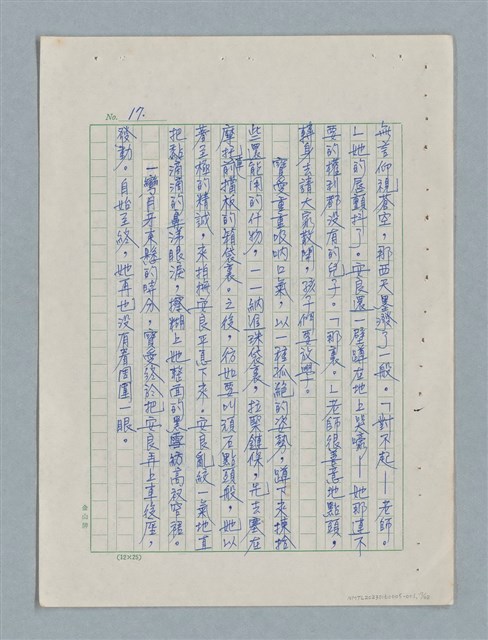 No. 17.
無言仰視蒼空，那西天墨潑了一般。「對不起——老師。
」她的唇顫抖了。安良還一壁蹲在地上哭嚎——她那連不
要的權利都沒有的兒子。「那裏。」老師很善意地點頭，
轉身去請大家散開，孩子們要放學。
寶愛重重吸吶口氣，以一種孤絕的姿勢，蹲下來揀拾
些還能用的什物，一一納進珠袋裏，拉緊鏈條，先去塞在
摩托車前擋板的箱袋裏。之後，彷如要叫頑石點頭般，她以
着至極的精誠，來拍撫安良平息下來。安良亂紋一氣地直
把黏滴滴的鼻涕眼淚，擦糊上她整面的黑雪紡高叉窄裙。
一彎月牙東懸的時分，寶愛終於把安良弄上車後座，
發動。自始至終，她再也沒有看周圍一眼。
(12×25)